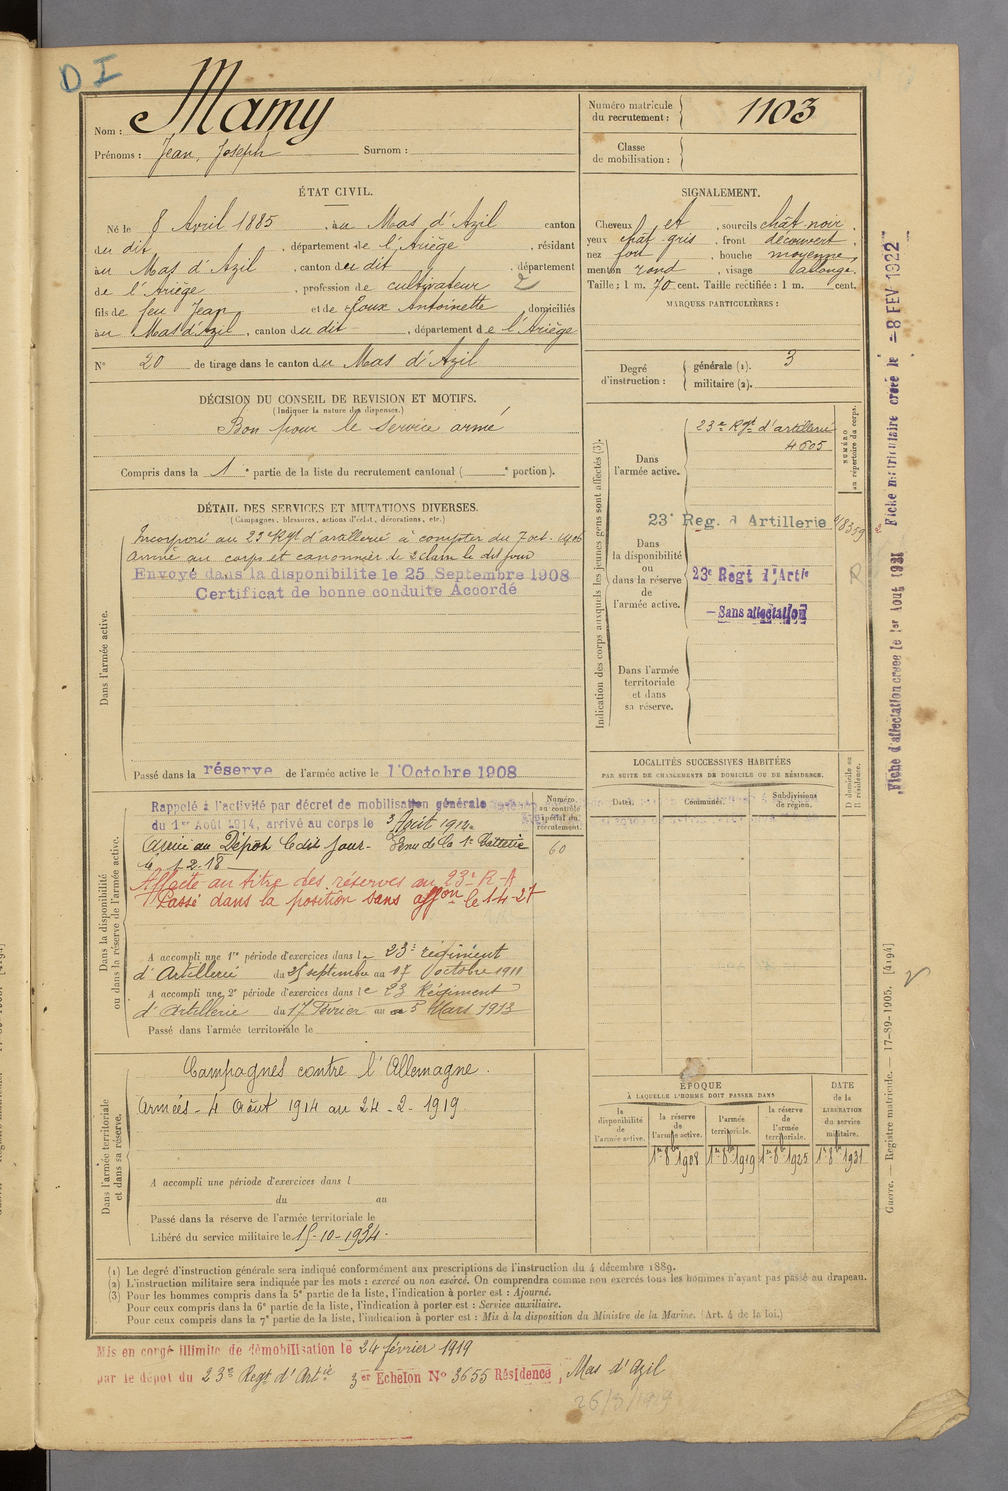 D I
Nom : Mamy
Prénoms : Jean, Joseph Surnom :
Numéro matricule du recrutement : 1103
Classe de mobilisation :
ÉTAT CIVIL.
Né le 8 Avril 1885, au Mas d'Azil canton
du dit, département de l'Ariège, résidant
au Mas d'Azil, canton du dit, département
de l'Ariège, profession de cultivateur 2
fils de feu Jean et de Roux Antoinette domiciliés
au Mas d'Azil, canton du dit, département de l'Ariège
N° 20 de tirage dans le canton du Mas d'Azil
SIGNALEMENT.
Cheveux et, sourcils chât noir.
yeux chât gris, front découvert,
nez fort, bouche moyenne,
menton rond, visage allongé.
Taille : 1 m. 70 cent. Taille rectifiée : 1 m. cent.
MARQUES PARTICULIÈRES :
Degré d'instruction : générale (1). 3
militaire (2).
DÉCISION DU CONSEIL DE REVISION ET MOTIFS.
(Indiquer la nature des dispenses.)
Bon pour le service armé
Compris dans la 1e partie de la liste du recrutement cantonal ( e portion).
DÉTAIL DES SERVICES ET MUTATIONS DIVERSES.
(Campagnes, blessures, actions d'éclat, décorations, etc.)
Dans l'armée active.
Incorporé au 23e Rgt d'artillerie à compter du 7 oct. 1906
Arrivé au corps et canonnier de 2e classe le dit jour
Envoyé dans la disponibilité le 25 Septembre 1908
Certificat de bonne conduite Accordé
Passé dans la réserve de l'armée active le 1er Octobre 1908
Indication des corps auxquels les jeunes gens sont affectés (3).
NUMÉRO au répertoire du corps.
Dans l'armée active.
23e Rgt d'artillerie
4605
23e Reg. d'Artillerie
Dans la disponibilité ou dans la réserve de l'armée active.
23e Regt d'Artie
R
Sans affectation
Dans l'armée territoriale et dans sa réserve.
Dans la disponibilité ou dans la réserve de l'armée active.
Numéro au contrôle spécial du recrutement.
60
Rappelé à l'activité par décret de mobilisation générale
du 1er Août 1914, arrivé au corps le 3 Août 1914.
Arrivé au Dépôt le dit jour. Venu de la 1e Batterie
le 1.2.18
Affecté au titre des réserves au 23e R.A
Passé dans la position sans affon le 1-4-27
A accompli une 1re période d'exercices dans le 23e régiment
d'Artillerie du 25 septembre au 17 octobre 1911
A accompli une 2e période d'exercices dans le 23 Régiment
d'Artillerie du 17 Février au 5 Mars 1913
Passé dans l'armée territoriale le
LOCALITÉS SUCCESSIVES HABITÉES
PAR SUITE DE CHANGEMENTS DE DOMICILE OU DE RÉSIDENCE.
Dates. Communes. Subdivisions de région. D domicile ou R résidence.
Dans l'armée territoriale et dans sa réserve.
Campagnes contre l'Allemagne.
Armées - 4 Août 1914 au 24-2-1919
A accompli une période d'exercices dans l
du au
Passé dans la réserve de l'armée territoriale le
Libéré du service militaire le 15-10-1934.
ÉPOQUE
À LAQUELLE L'HOMME DOIT PASSER DANS
la disponibilité de l'armée active.
la réserve de l'armée active.
l'armée territoriale.
la réserve de l'armée territoriale.
DATE de la LIBÉRATION du service militaire.
1er 8bre 1908 1er 8bre 1919 1er 8bre 1925 1er 8bre 1931
(1) Le degré d'instruction générale sera indiqué conformément aux prescriptions de l'instruction du 4 décembre 1889.
(2) L'instruction militaire sera indiquée par les mots : exercé ou non exercé. On comprendra comme non exercés tous les hommes n'ayant pas passé au drapeau.
(3) Pour les hommes compris dans la 5e partie de la liste, l'indication à porter est : Ajourné.
Pour ceux compris dans la 6e partie de la liste, l'indication à porter est : Service auxiliaire.
Pour ceux compris dans la 7e partie de la liste, l'indication à porter est : Mis à la disposition du Ministre de la Marine. (Art. 4 de la loi.)
Mis en congé illimité de démobilisation le 24 février 1919
par le dépôt du 23e Regt d'Artie 3er Echelon N° 3655 Résidence, Mas d'Azil
26/8/1919
Fiche matriculaire créée le -8 FEV 1922
Fiche d'affectation créée le 1er Aout 1931
Guerre. — Registre matricule. — 17-89-1905. [4194]